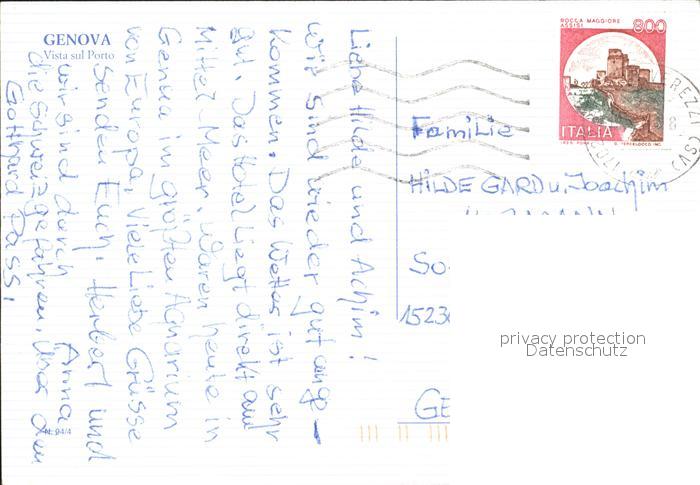 GENOVA
Vista sul Porto
Liebe Hilde und Achim!
Wir sind wieder gut ange-
kommen. Das Wetter ist sehr
gut. Das Hotel liegt direkt am
Mittel-Meer. Waren heute in
Genua im größten Aquarium
von Europa. Viele Liebe Grüsse
senden Euch. Herbert und
Anna
wir sind durch
die Schweiz gefahren. über den
Gotthard Pass.
N. 94/4
ROCCA MAGGIORE
ASSISI
800
ITALIA
REZZI (SV)
Familie
HILDEGARD u. Joachim
So
1523
GE
privacy protection
Datenschutz